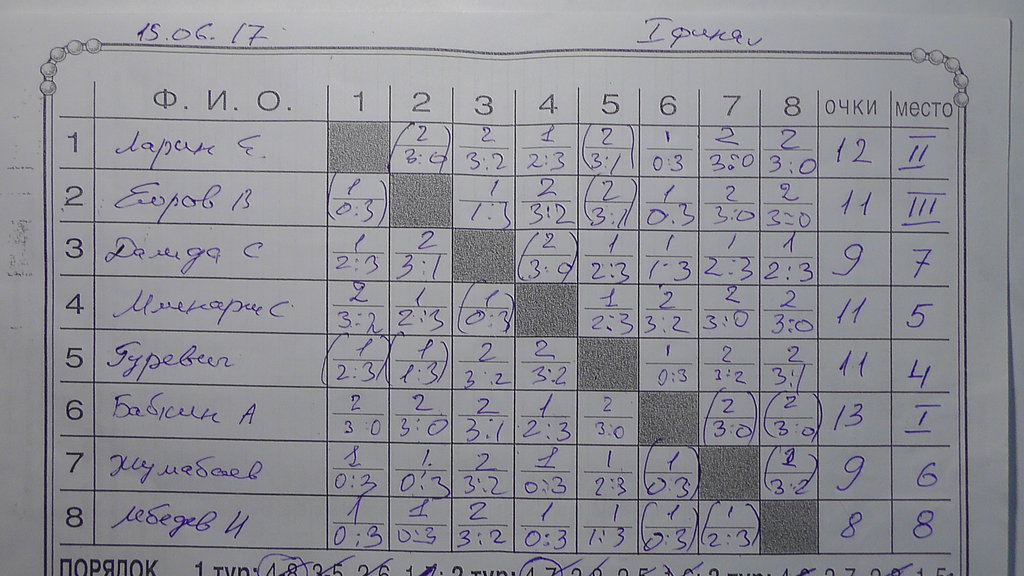 15.06.17 I финал
Ф. И. О. 1 2 3 4 5 6 7 8 очки место
1 Ларин Е. (2 3:0) 2 3:2 1 2:3 (2 3:1) 1 0:3 2 3:0 2 3:0 12 II
2 Егоров В (1 0:3) 1 1:3 2 3:2 (2 3:1) 1 0:3 2 3:0 2 3:0 11 III
3 Далида С 1 2:3 2 3:1 (2 3:0) 1 2:3 1 1:3 1 2:3 1 2:3 9 7
4 С 2 3:2 1 2:3 (1 0:3) 1 2:3 2 3:2 2 3:0 2 3:0 11 5
5 Гуревич (1 2:3) (1 1:3) 2 3:2 2 3:2 1 0:3 2 3:2 2 3:1 11 4
6 Бабкин А 2 3:0 2 3:0 2 3:1 1 2:3 2 3:0 (2 3:0) (2 3:0) 13 I
7 Жумабаев 1 0:3 1 0:3 2 3:2 1 0:3 1 2:3 (1 0:3) (2 3:2) 9 6
8 Лебедев И 1 0:3 1 0:3 2 3:2 1 0:3 1 1:3 (1 0:3) (1 2:3) 8 8
ПОРЯДОК 1 тур: 4-8 3-5 2-6 2 тур: 4-7